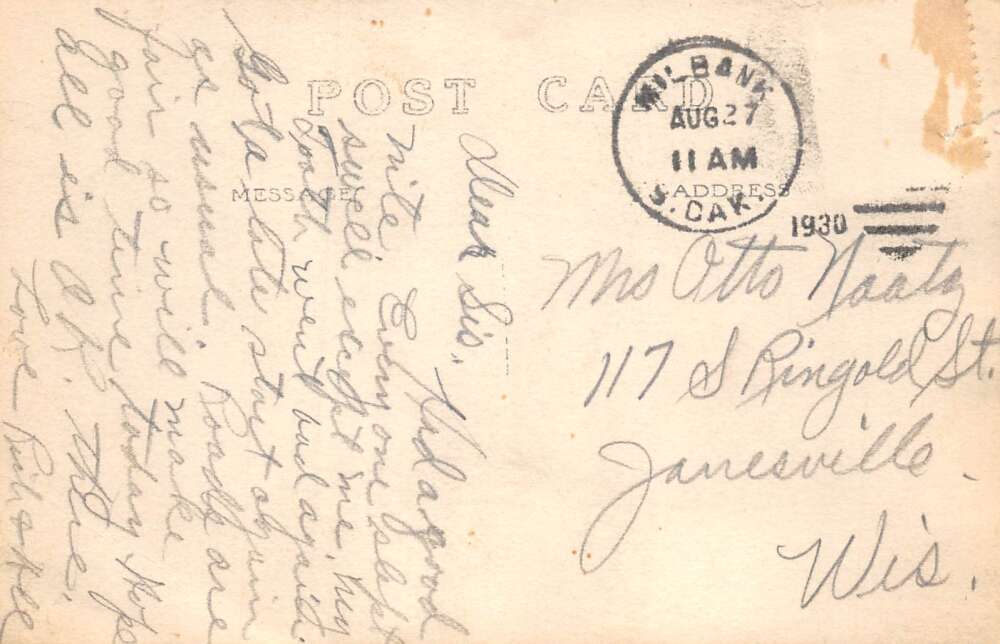 POST CARD
MESSAGE
ADDRESS
MILBANK
AUG 27
11 AM
S. DAK.
1930
Dear Sis,
Had a good
nite. Everyone slept
swell except me, my
Tooth went bad again.
Got a late start again
as usual. Roads are
fair so will make
good time today. Hope
all is O.K. there.
Love Rich &
Mrs Otto Naatz
117 S Ringold St.
Janesville.
Wis.